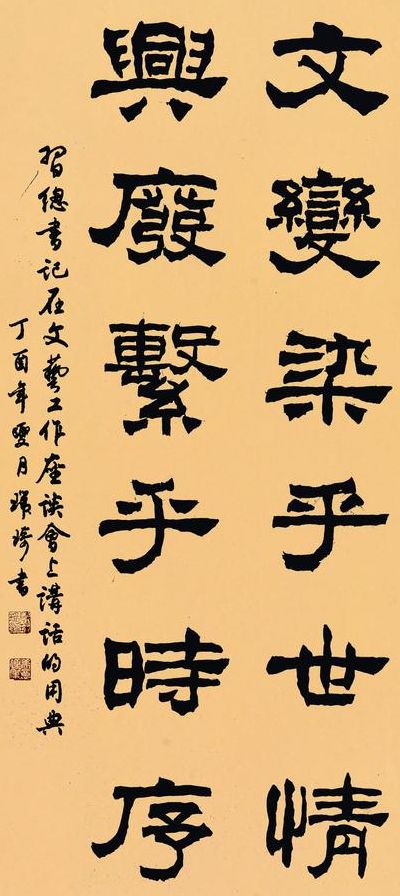 文變染乎世情
興廢繫乎時序
習總書記在文藝工作座談會上講話的用典
丁酉年
月
書